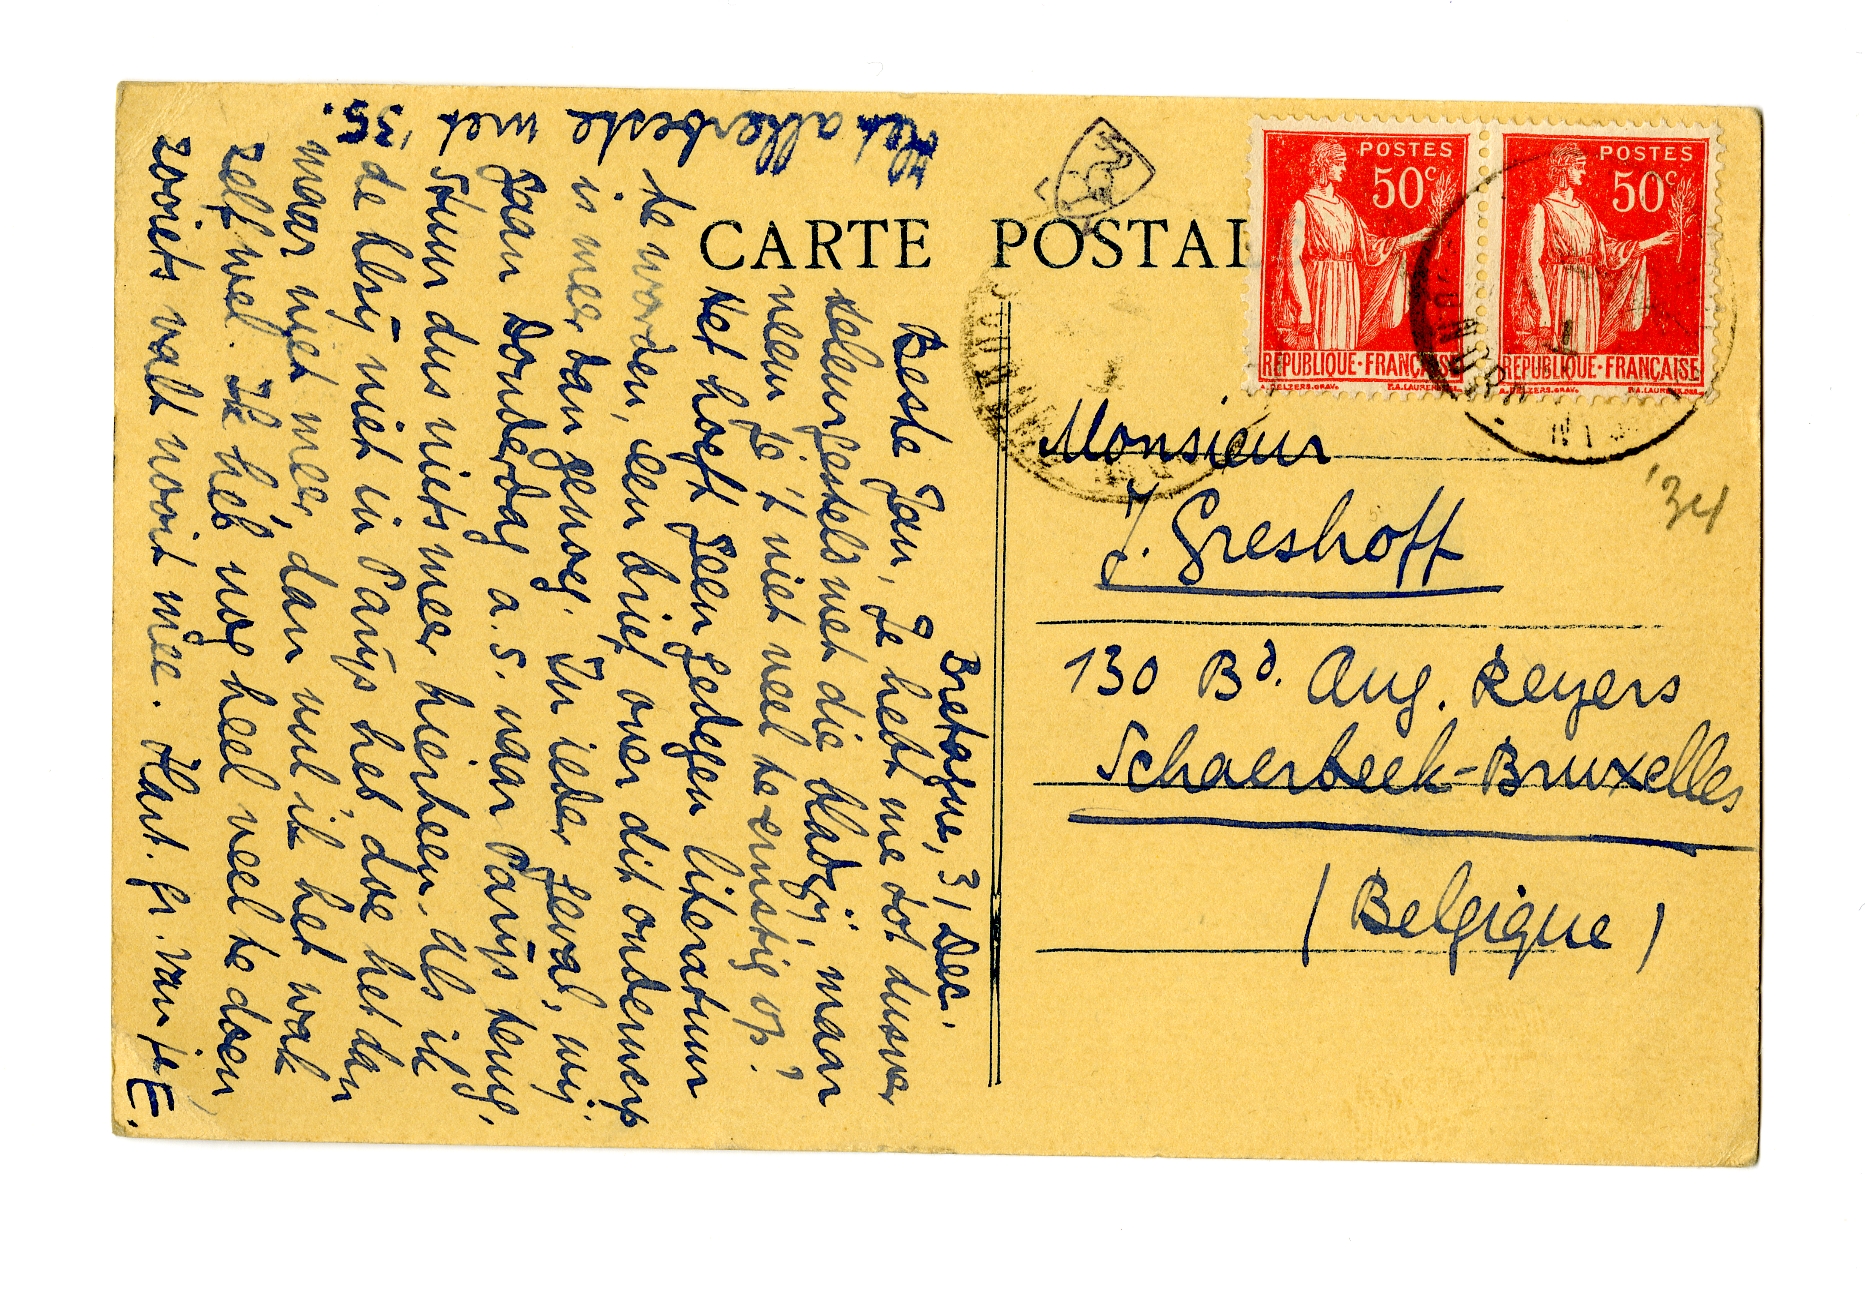 CARTE POSTALE
POSTES
50c
REPUBLIQUE·FRANÇAISE
POSTES
50c
REPUBLIQUE·FRANÇAISE
Monsieur
J. Greshoff
130 Bd. Aug. Reyers
Schaerbeek-Bruxelles
(Belgique)
'34
Bretagne, 31 Dec.
Beste Jan, Je hebt me dot dusver
teleurgesteld met die bladzij, maar
neem je 't niet veel te ernstig op?
Het hoeft geen gedegen literatuur
te worden, een brief over dit onderwerp
is meer dan genoeg. In ieder geval, wij
gaan Donderdag a.s. naar Parijs terug.
Stuur dus niets meer hierheen. Als ik
de kry niet in Parijs heb doe het dan
maar niet meer, dan vul ik het wat
zelf wel. Ik heb nog heel veel te doen,
zooiets valt nooit mee. Hart. gr. van je E.
Het allerbeste met
'35.